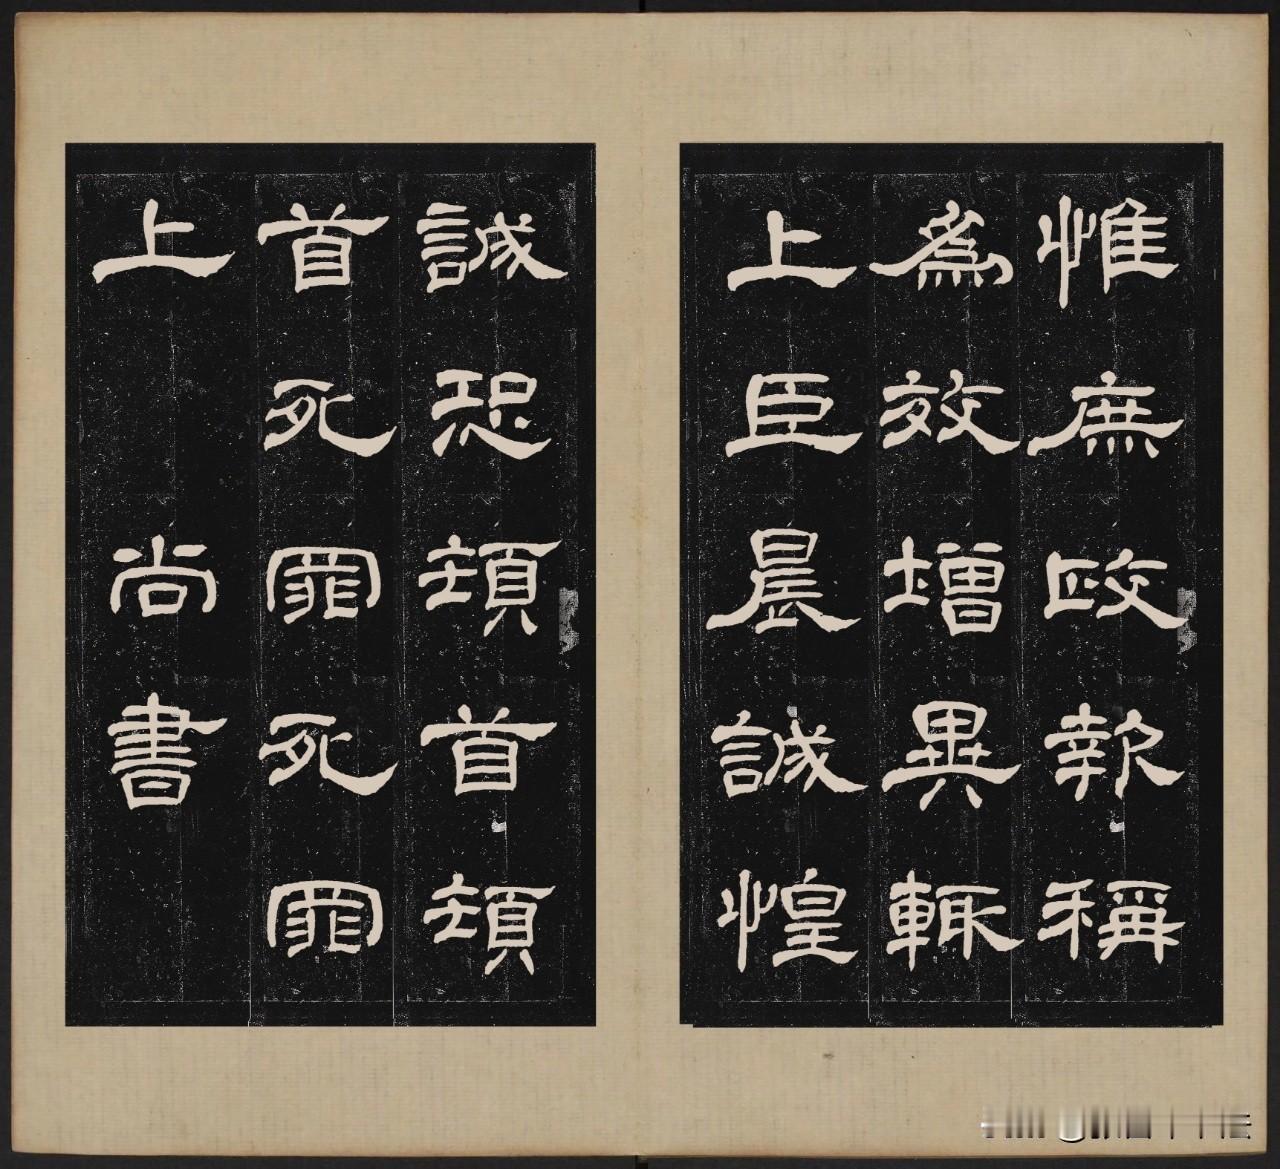 惟庶政報稱
爲效增異輒
上臣晨誠惶
誠恐頓首頓
首死罪死罪
上尚書